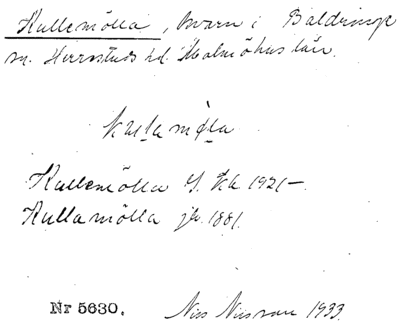 Kullemölla, kvarn i Baldringe
sn. Herrestads hd. Malmöhus län.
kulamøla
Kullemölla
1921–
Kullamölla jb. 1881.
Nr 5630. Nils Nilsson 1933.